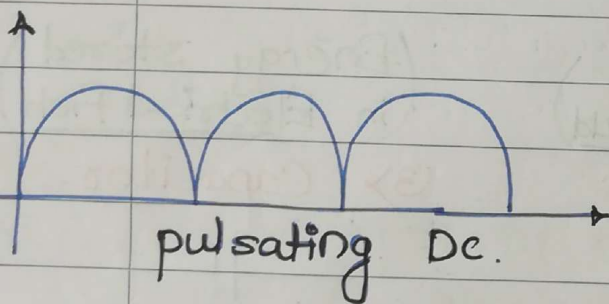 pulsating Dc.